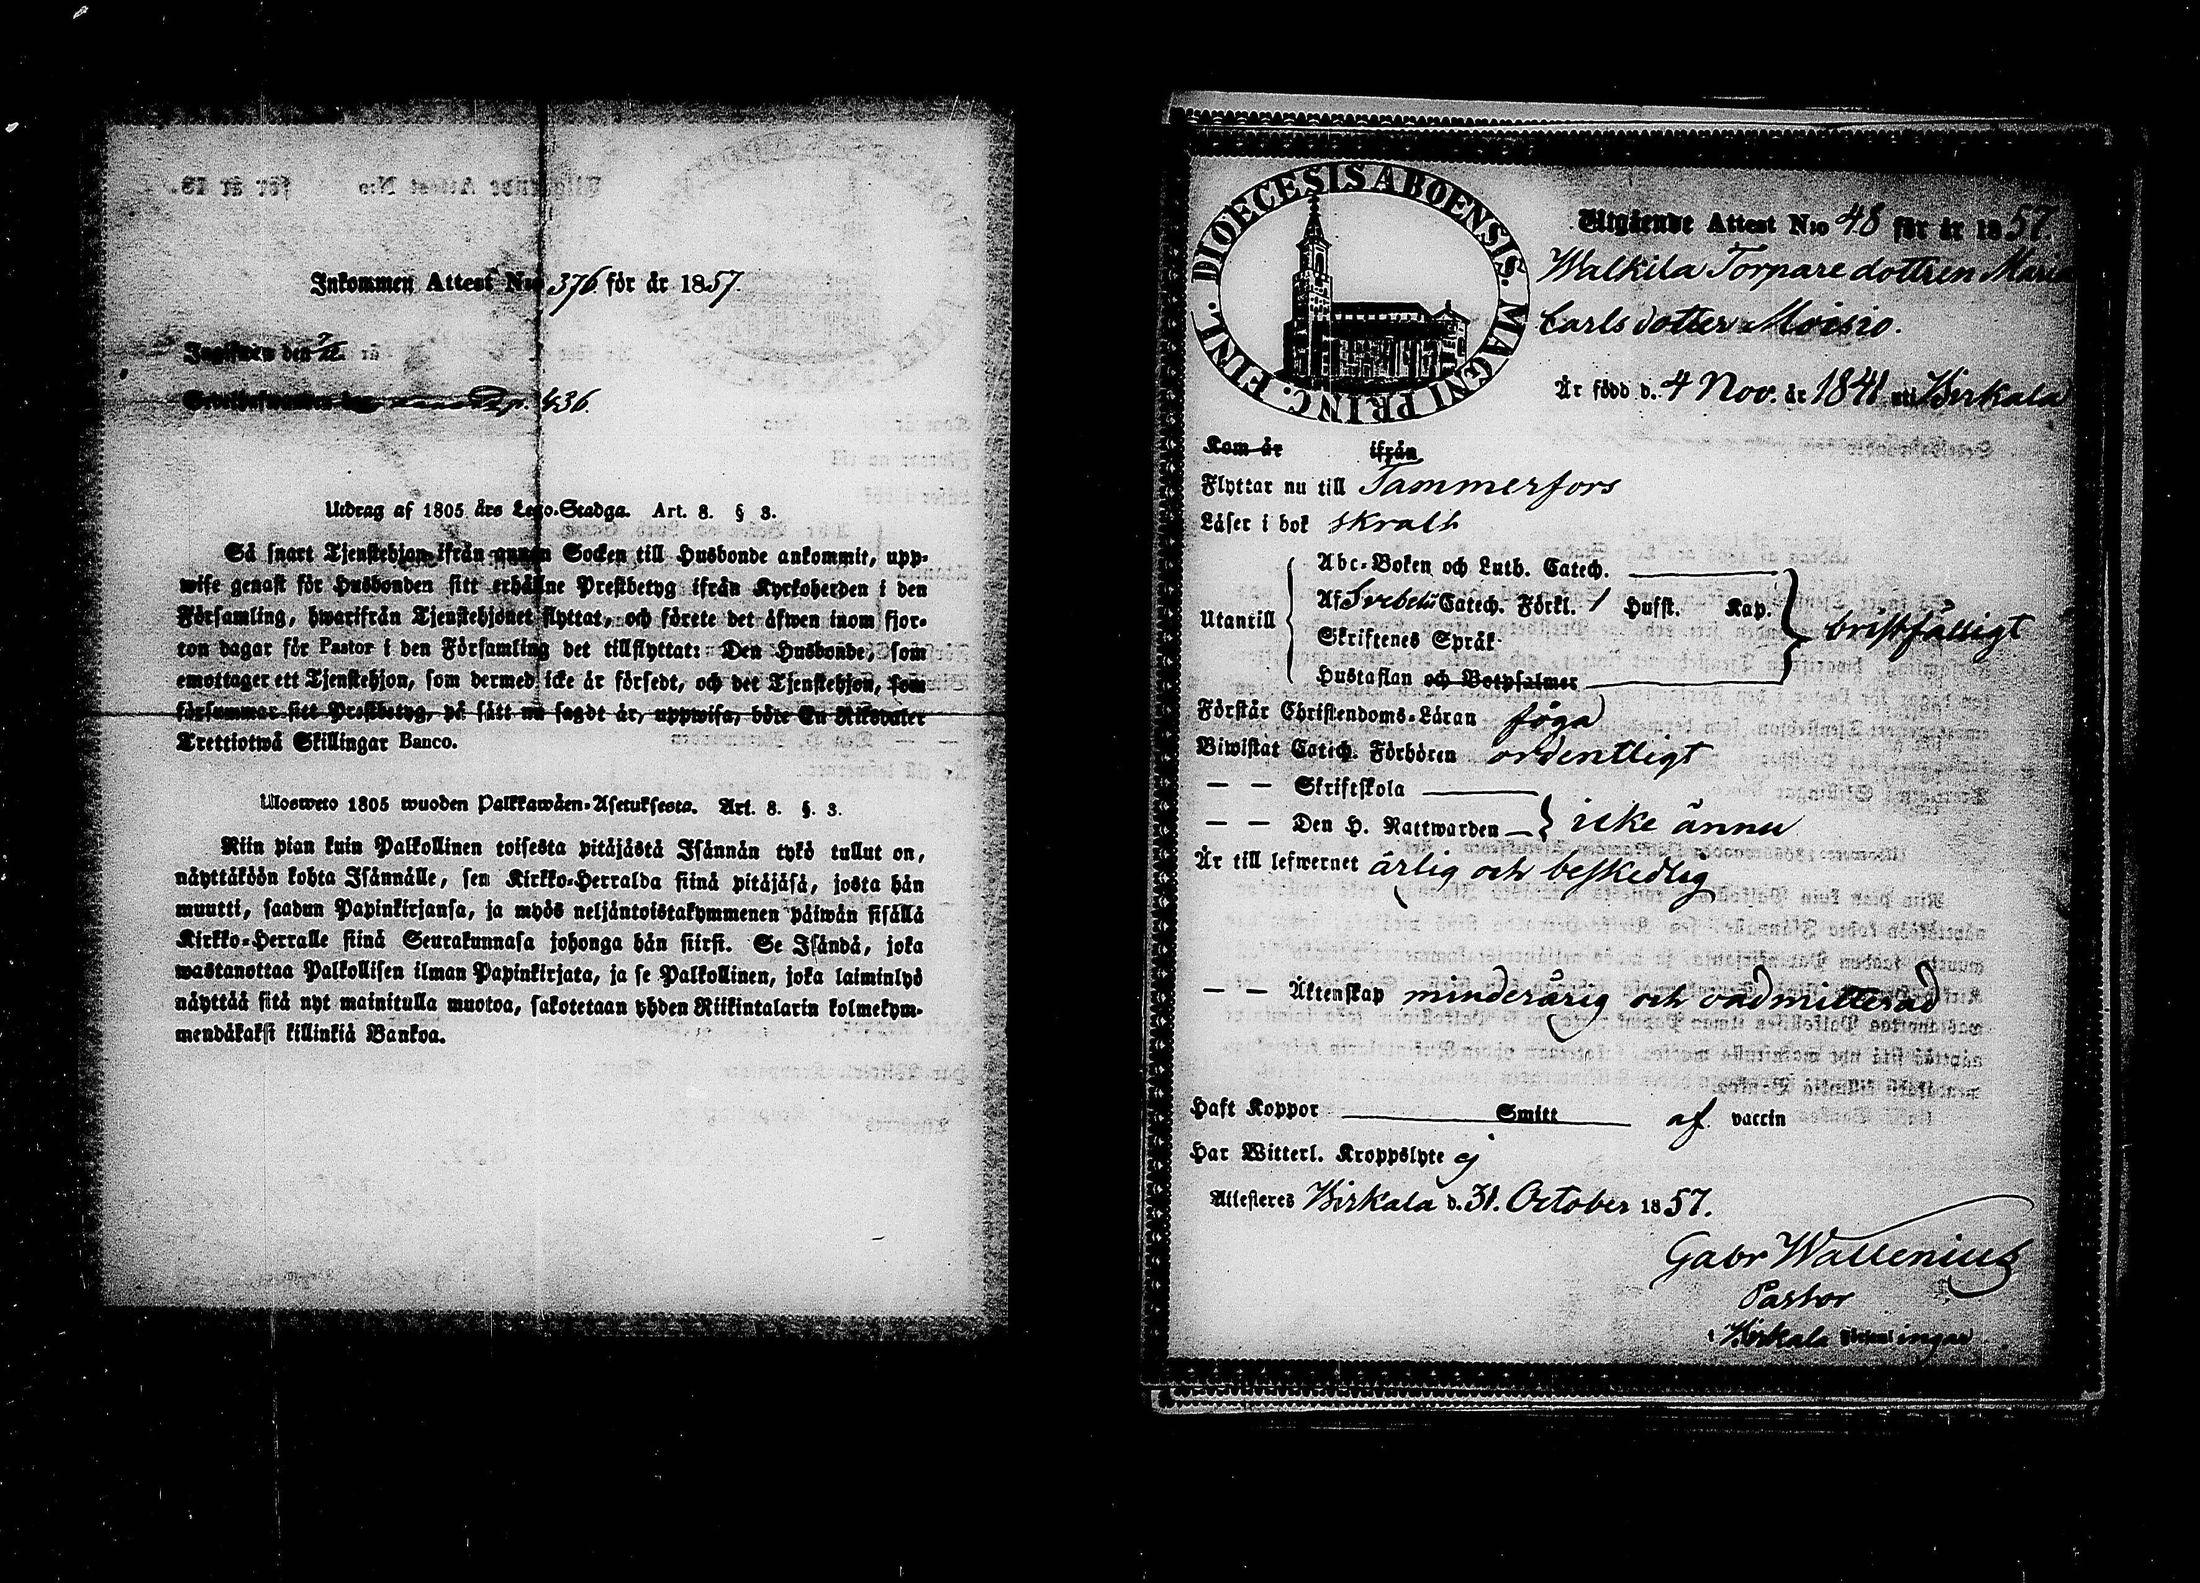 Inkommen Attest N:o 376 för år 1857.
Ingifwen den
436.
Utdrag af 1805 års Lego-Stadga. Art. 8. § 3.
Så snart Tjenstehjon ifrån annan Socken till Husbonde ankommit, upp-
wise genast för Husbonden sitt erhållne Prestbetyg ifrån Kyrkoherden i den
Församling, hwarifrån Tjenstehjonet flyttat, och förete det äfwen inom fjor-
ton dagar för Pastor i den Församling det tillflyttat: Den Husbonde, som
emottager ett Tjenstehjon, som dermed icke är försedt, och det Tjenstehjon, som
försummar sitt Prestbetyg, på sätt nu sagdt är, uppwisa, böte En Riksdaler
Trettiotwå Skillingar Banco.
Ulosweto 1805 wuoden Palkkawäen-Asetuksesta. Art. 8. §. 3.
Niin pian kuin Palkollinen toisesta pitäjästä Isännän tykö tullut on,
näyttäköön kohta Isännälle, sen Kirkko-Herralda siinä pitäjäsä, josta hän
muutti, saadun Papinkirjansa, ja myös neljäntoistakymmenen päiwän sisällä
Kirkko-Herralle siinä Seurakunnasa johonga hän siirsi. Se Isändä, joka
wastanottaa Palkollisen ilman Papinkirjata, ja se Palkollinen, joka laiminlyö
näyttää sitä nyt mainitulla muotoa, sakotetaan yhden Riikintalarin kolmekym-
mendäkaksi killinkiä Bankoa.
DIOECESIS ABOENSIS. MAGNI PRINC. FINL.
Utgående Attest N:o 48 för år 1857.
Walkila Torpare dottren Maria
Carls dotter Moisio.
Är född d. 4 Nov. år 1841 uti Birkala
Kom år ifrån
Flyttar nu till Tammerfors
Läser i bok skralt
Abc-Boken och Luth. Catech.
Utantill
Af Svebelii Catech. Förkl. 1 Hufst. Kap.
bristfälligt
Skriftenes Språk
Hustaflan och Botpsalmer
Förstår Christendoms-Läran föga
Biwistat Catech. Förhören ordentligt
— — Skriftskola
— — Den H. Nattwarden
icke ännu
Är till lefwernet ärlig och beskedlig
— — Äktenskap minderårig och oadmitterad
Haft Koppor Smitt af vaccin
Har Witterl. Kroppslyte ej
Attesteres Birkala d. 31. October 1857.
Gabr Wallenius
Pastor
i Birkala